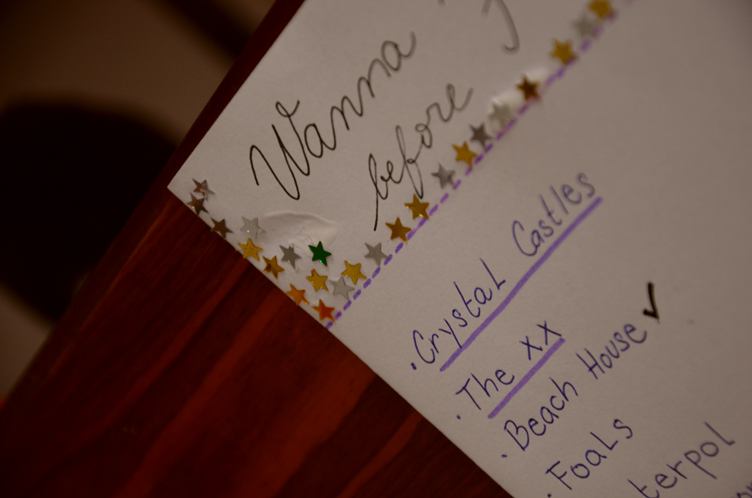 Wanna
before
· Crystal Castles
· The xx
· Beach House ✓
· Foals
terpol